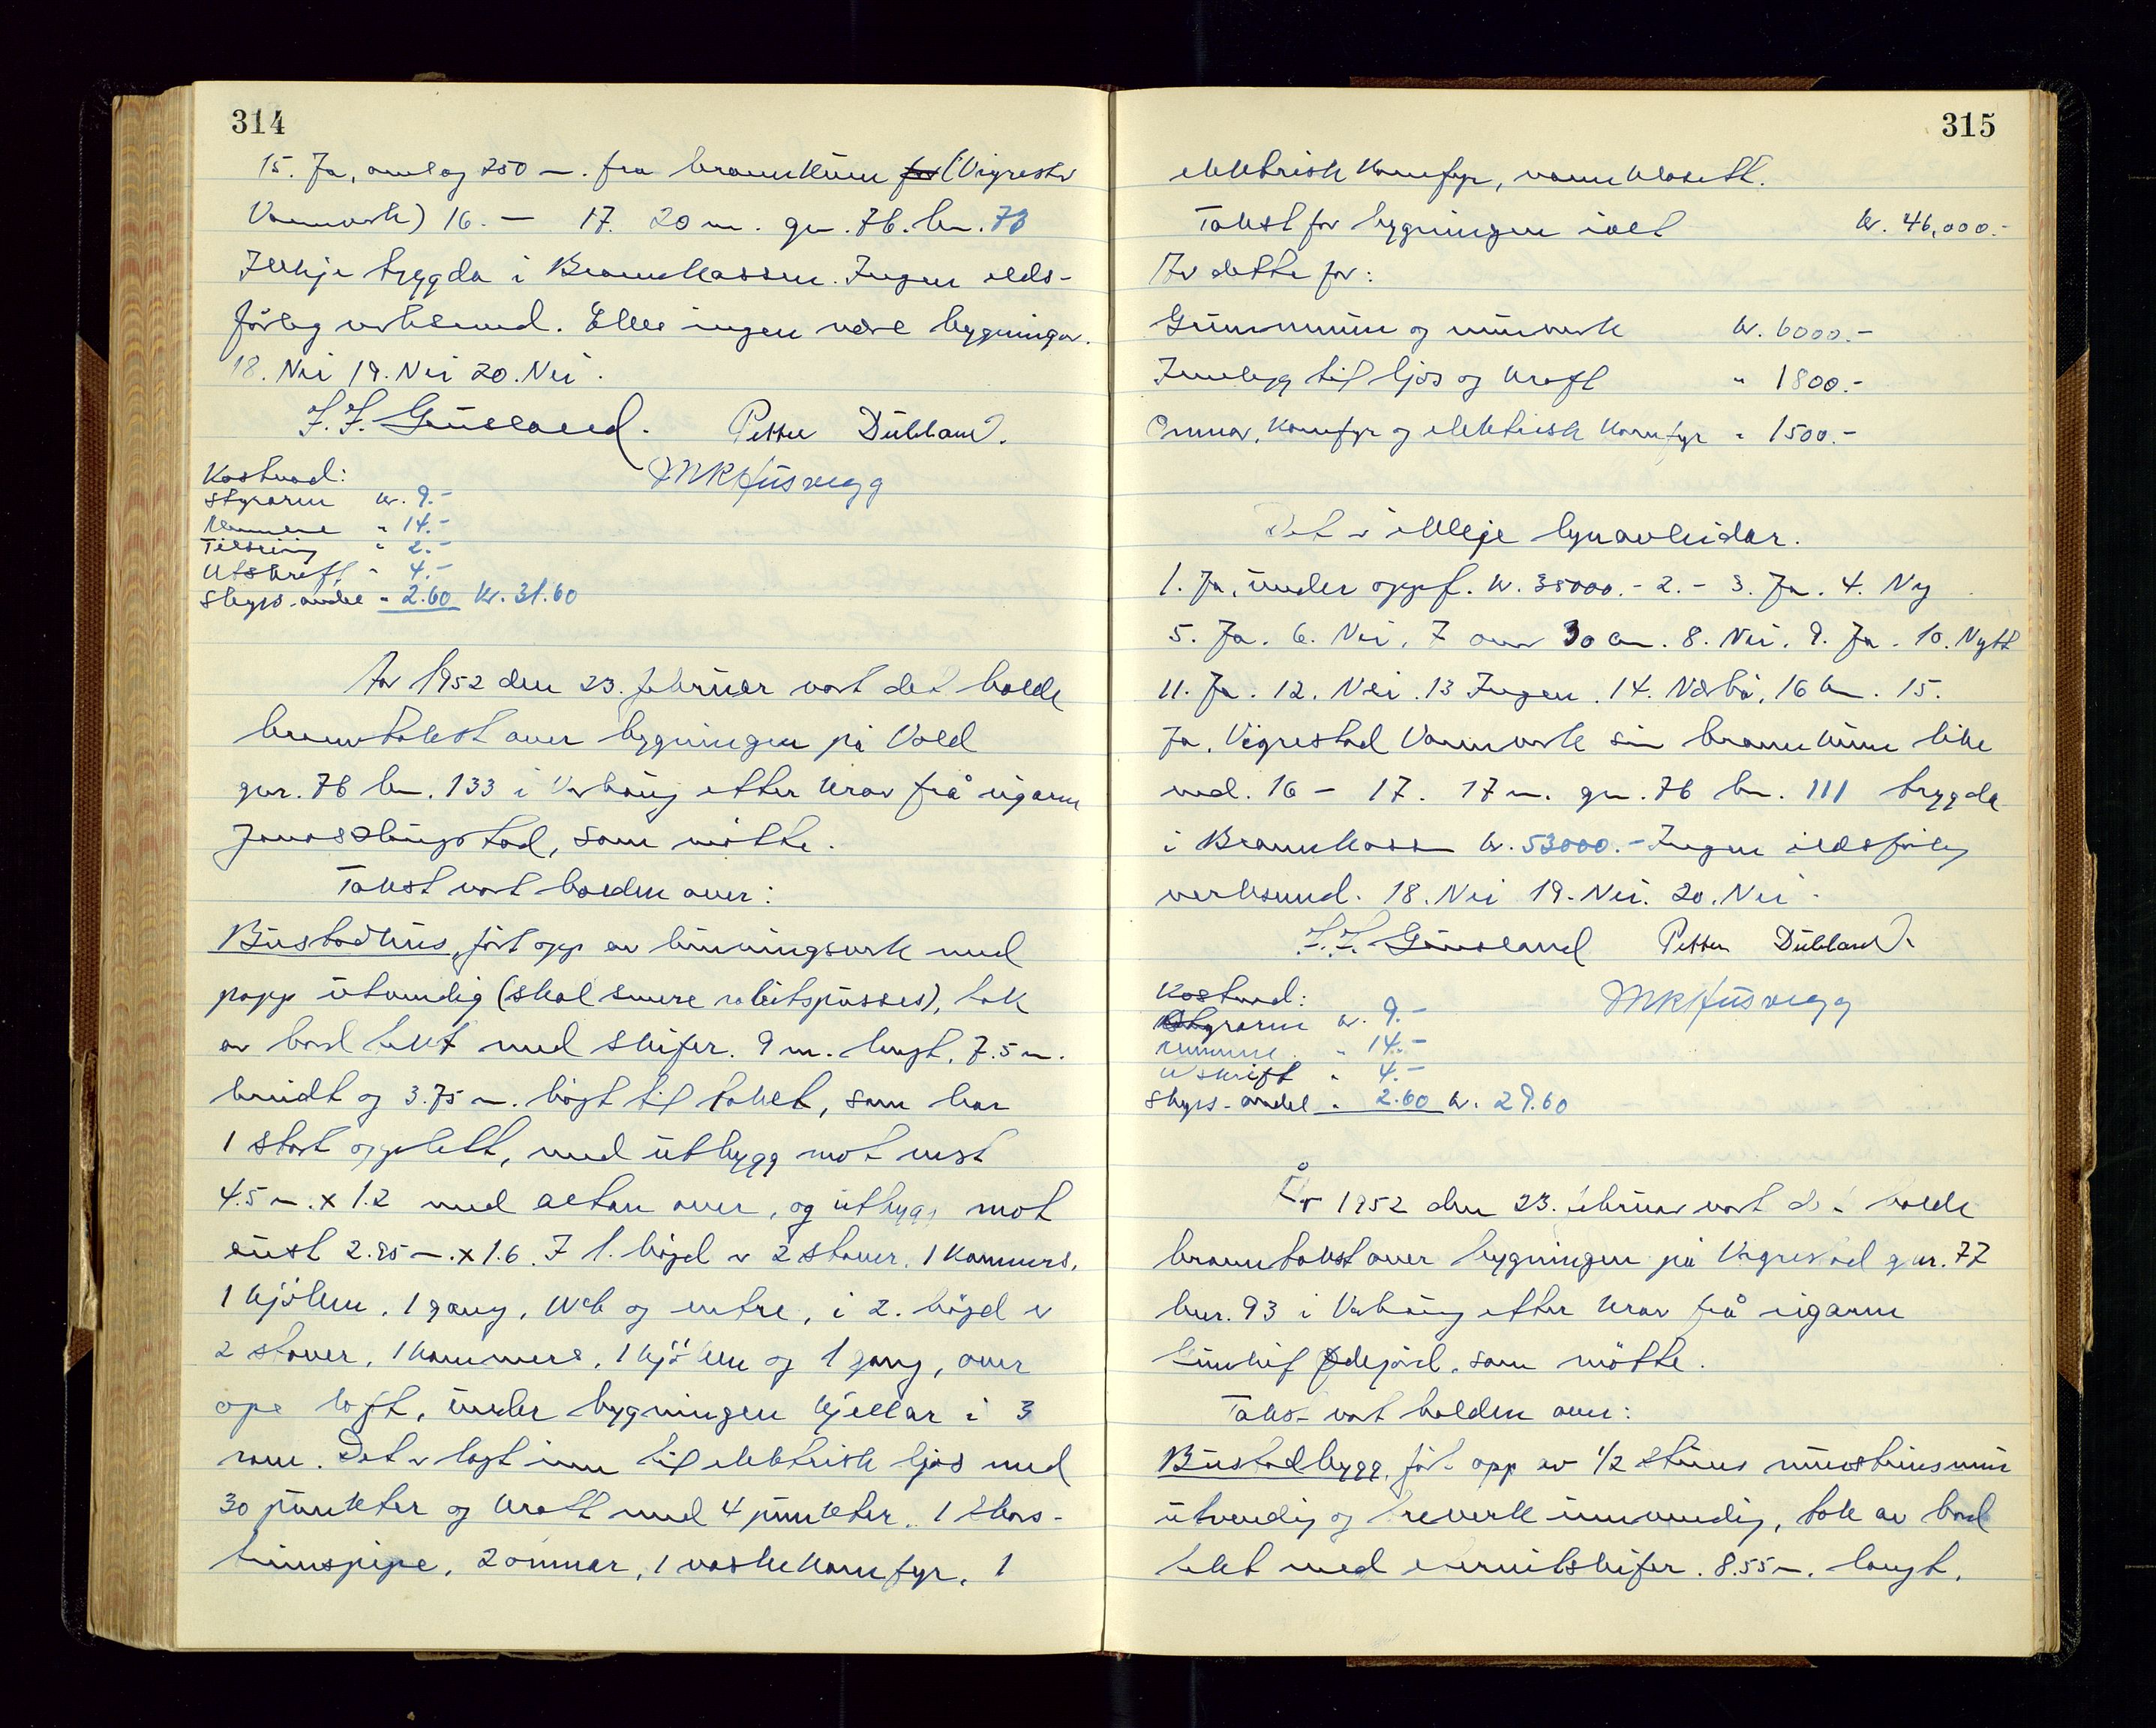 314
15. Ja, omlag 250 m. fra brannkum for (Vigrestad
Vannverk) 16. — 17. 20 m. gnr. 76. bnr. 73
Ikkje trygda i Brannkassen. Ingen elds-
fårleg verksemd. Elles ingen nære bygningar.
18. Nei 19. Nei 20. Nei.
J. J. Grusland. Petter Dubland.
MKHusvegg
Kostnad:
Styraren kr. 9.-
Nemnene " 14.-
Tilseiing " 2.-
Utskrift " 4.-
Skyss-andel " 2.60 kr. 31.60
År 1952 den 23. februar vart det halde
branntakst over bygningen på Vold
gnr. 76 bnr. 133 i Varhaug etter krav frå eigaren
som møtte.
Takst vart halden over:
Bustadhus, ført opp av binningsverk med
papp utvendig (skal seinere rabitspusses), tak
av bord tekt med skifer. 9 m. langt, 7.5 m.
breidt og 3.75 m. høgt til taket, som har
1 stort opplett, med utbygg mot vest
4.5 m. x 1.2 med altan over, og utbygg mot
aust 2.85 m. x 1.6. I 1. høgd er 2 stover, 1 kammers,
1 kjøken, 1 gang, Wc og entre, i 2. høgd er
2 stover, 1 kammers, 1 kjøken og 1 gang, over
ope loft, under bygningen kjellar i 3
rom. Det er lagt inn til elektrisk ljos med
30 punkter og kraft med 4 punkter. 1 skor-
steinspipe, 2 omnar, 1 vaskekomfyr, 1
315
elektrisk komfyr, vannklosett.
Takst for bygningen ialt kr. 46,000.-
Av dette for:
Grunnmur og murverk kr. 6000.-
Innlegg til ljos og kraft " 1800.-
Omnar, komfyr og elektrisk komfyr " 1500.-
Det er ikkje lynavleidar.
1. Ja, under oppf. kr. 35000.- 2. - 3. Ja. 4. Ny
5. Ja. 6. Nei. 7 over 30 cm. 8. Nei. 9. Ja. 10. Nytt
11. Ja. 12. Nei. 13 Ingen. 14. Nærbø, 16 km. 15.
Ja, Vigrestad Vannverk sin brannkum like
ved. 16 - 17. 17 m. gnr. 76 bnr. 111 trygda
i Brannkassen kr. 53000.- Ingen eldsfårleg
verksemd. 18. Nei 19. Nei. 20. Nei.
J. J. Grusland Petter Dubland.
MKHusvegg
Kostnad:
Styraren kr. 9.-
Nemnene " 14.-
Utskrift " 4.-
Skyss-andel " 2.60 kr. 29.60
År 1952 den 23. februar vart det halde
branntakst over bygningen på Vigrestad gnr. 77
bnr. 93 i Varhaug etter krav frå eigaren
Ødegård, som møtte.
Takst vart halden over:
Bustadbygg, ført opp av 1/2 steins mursteinsmur
utvendig og treverk innvendig, tak av bord
tekt med eternitskifer. 8.55 m. langt,